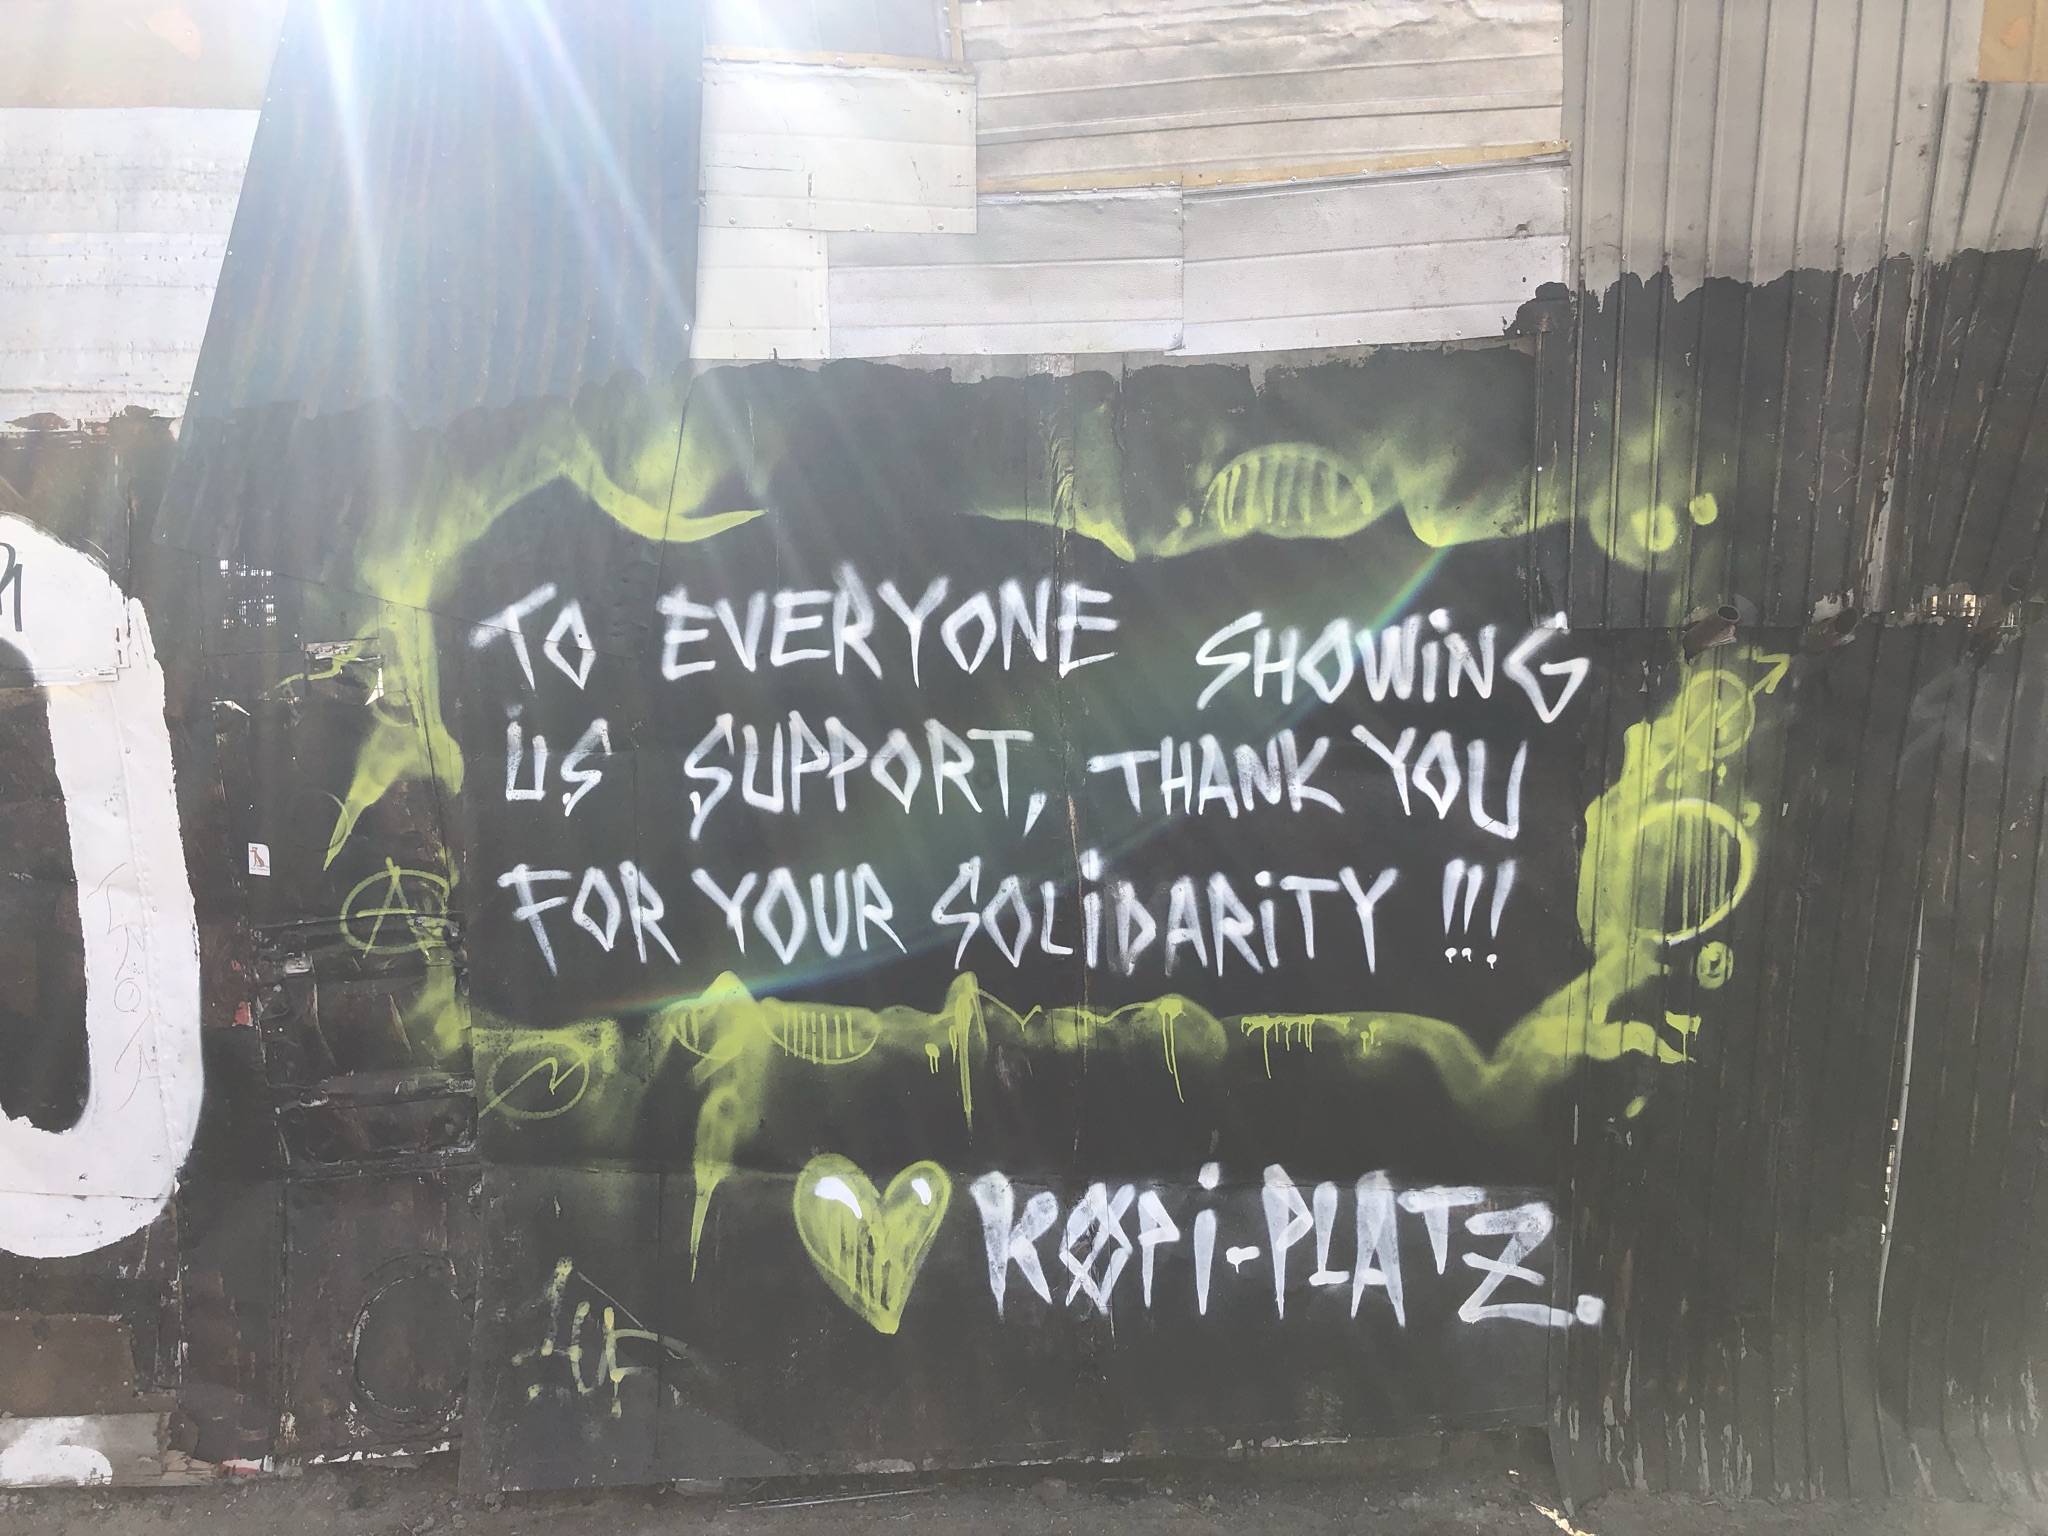 TO EVERYONE SHOWiNG
US SUPPORT, THANK YOU
FOR YOUR SOLiDARiTY !!!
KØPi-PLATZ.